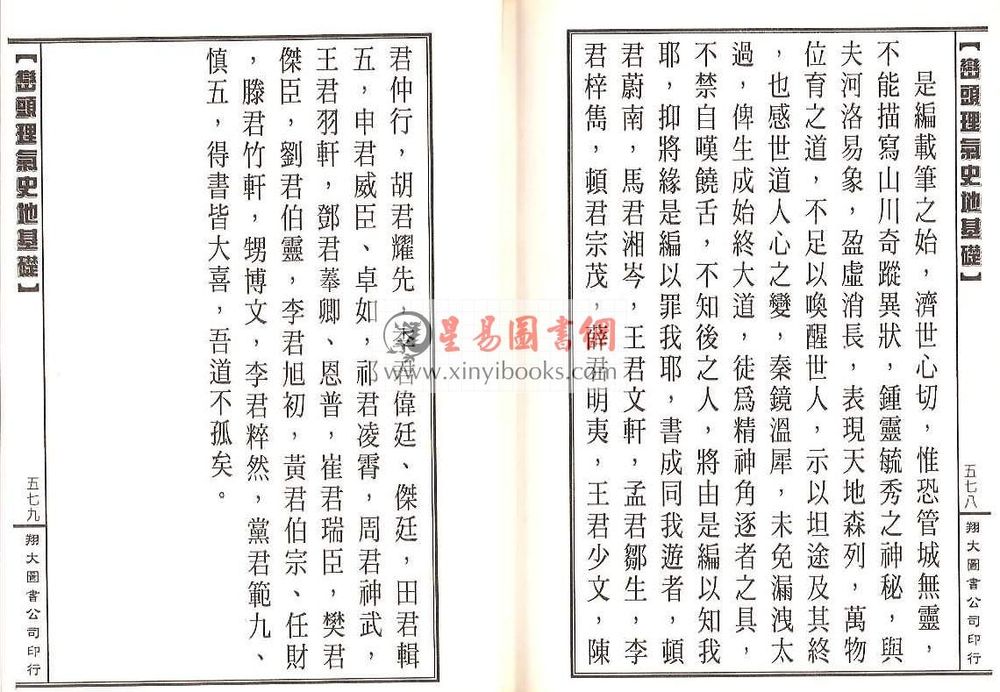 【巒頭理氣史地基礎】
五七八
翔大圖書公司印行
是編載筆之始，濟世心切，惟恐管城無靈，
不能描寫山川奇蹤異狀，鍾靈毓秀之神秘，與
夫河洛易象，盈虛消長，表現天地森列，萬物
位育之道，不足以喚醒世人，示以坦途及其終
，也感世道人心之變，秦鏡溫犀，未免漏洩太
過，俾生成始終大道，徒為精神角逐者之具，
不禁自嘆饒舌，不知後之人，將由是編以知我
耶，抑將緣是編以罪我耶，書成同我遊者，頓
君蔚南，馬君湘岑，王君文軒，孟君鄒生，李
君梓雋，頓君宗茂，薛君明夷，王君少文，陳
君仲行，胡君耀先，君偉廷、傑廷，田君輯
五，申君威臣、卓如，祁君凌霄，周君神武，
王君羽軒，鄧君菶卿、恩普，崔君瑞臣，樊君
傑臣，劉君伯靈，李君旭初，黃君伯宗、任財
，滕君竹軒，甥博文，李君粹然，黨君範九、
慎五，得書皆大喜，吾道不孤矣。
【巒頭理氣史地基礎】
五七九
翔大圖書公司印行
星易圖書網
www.xinyibooks.com